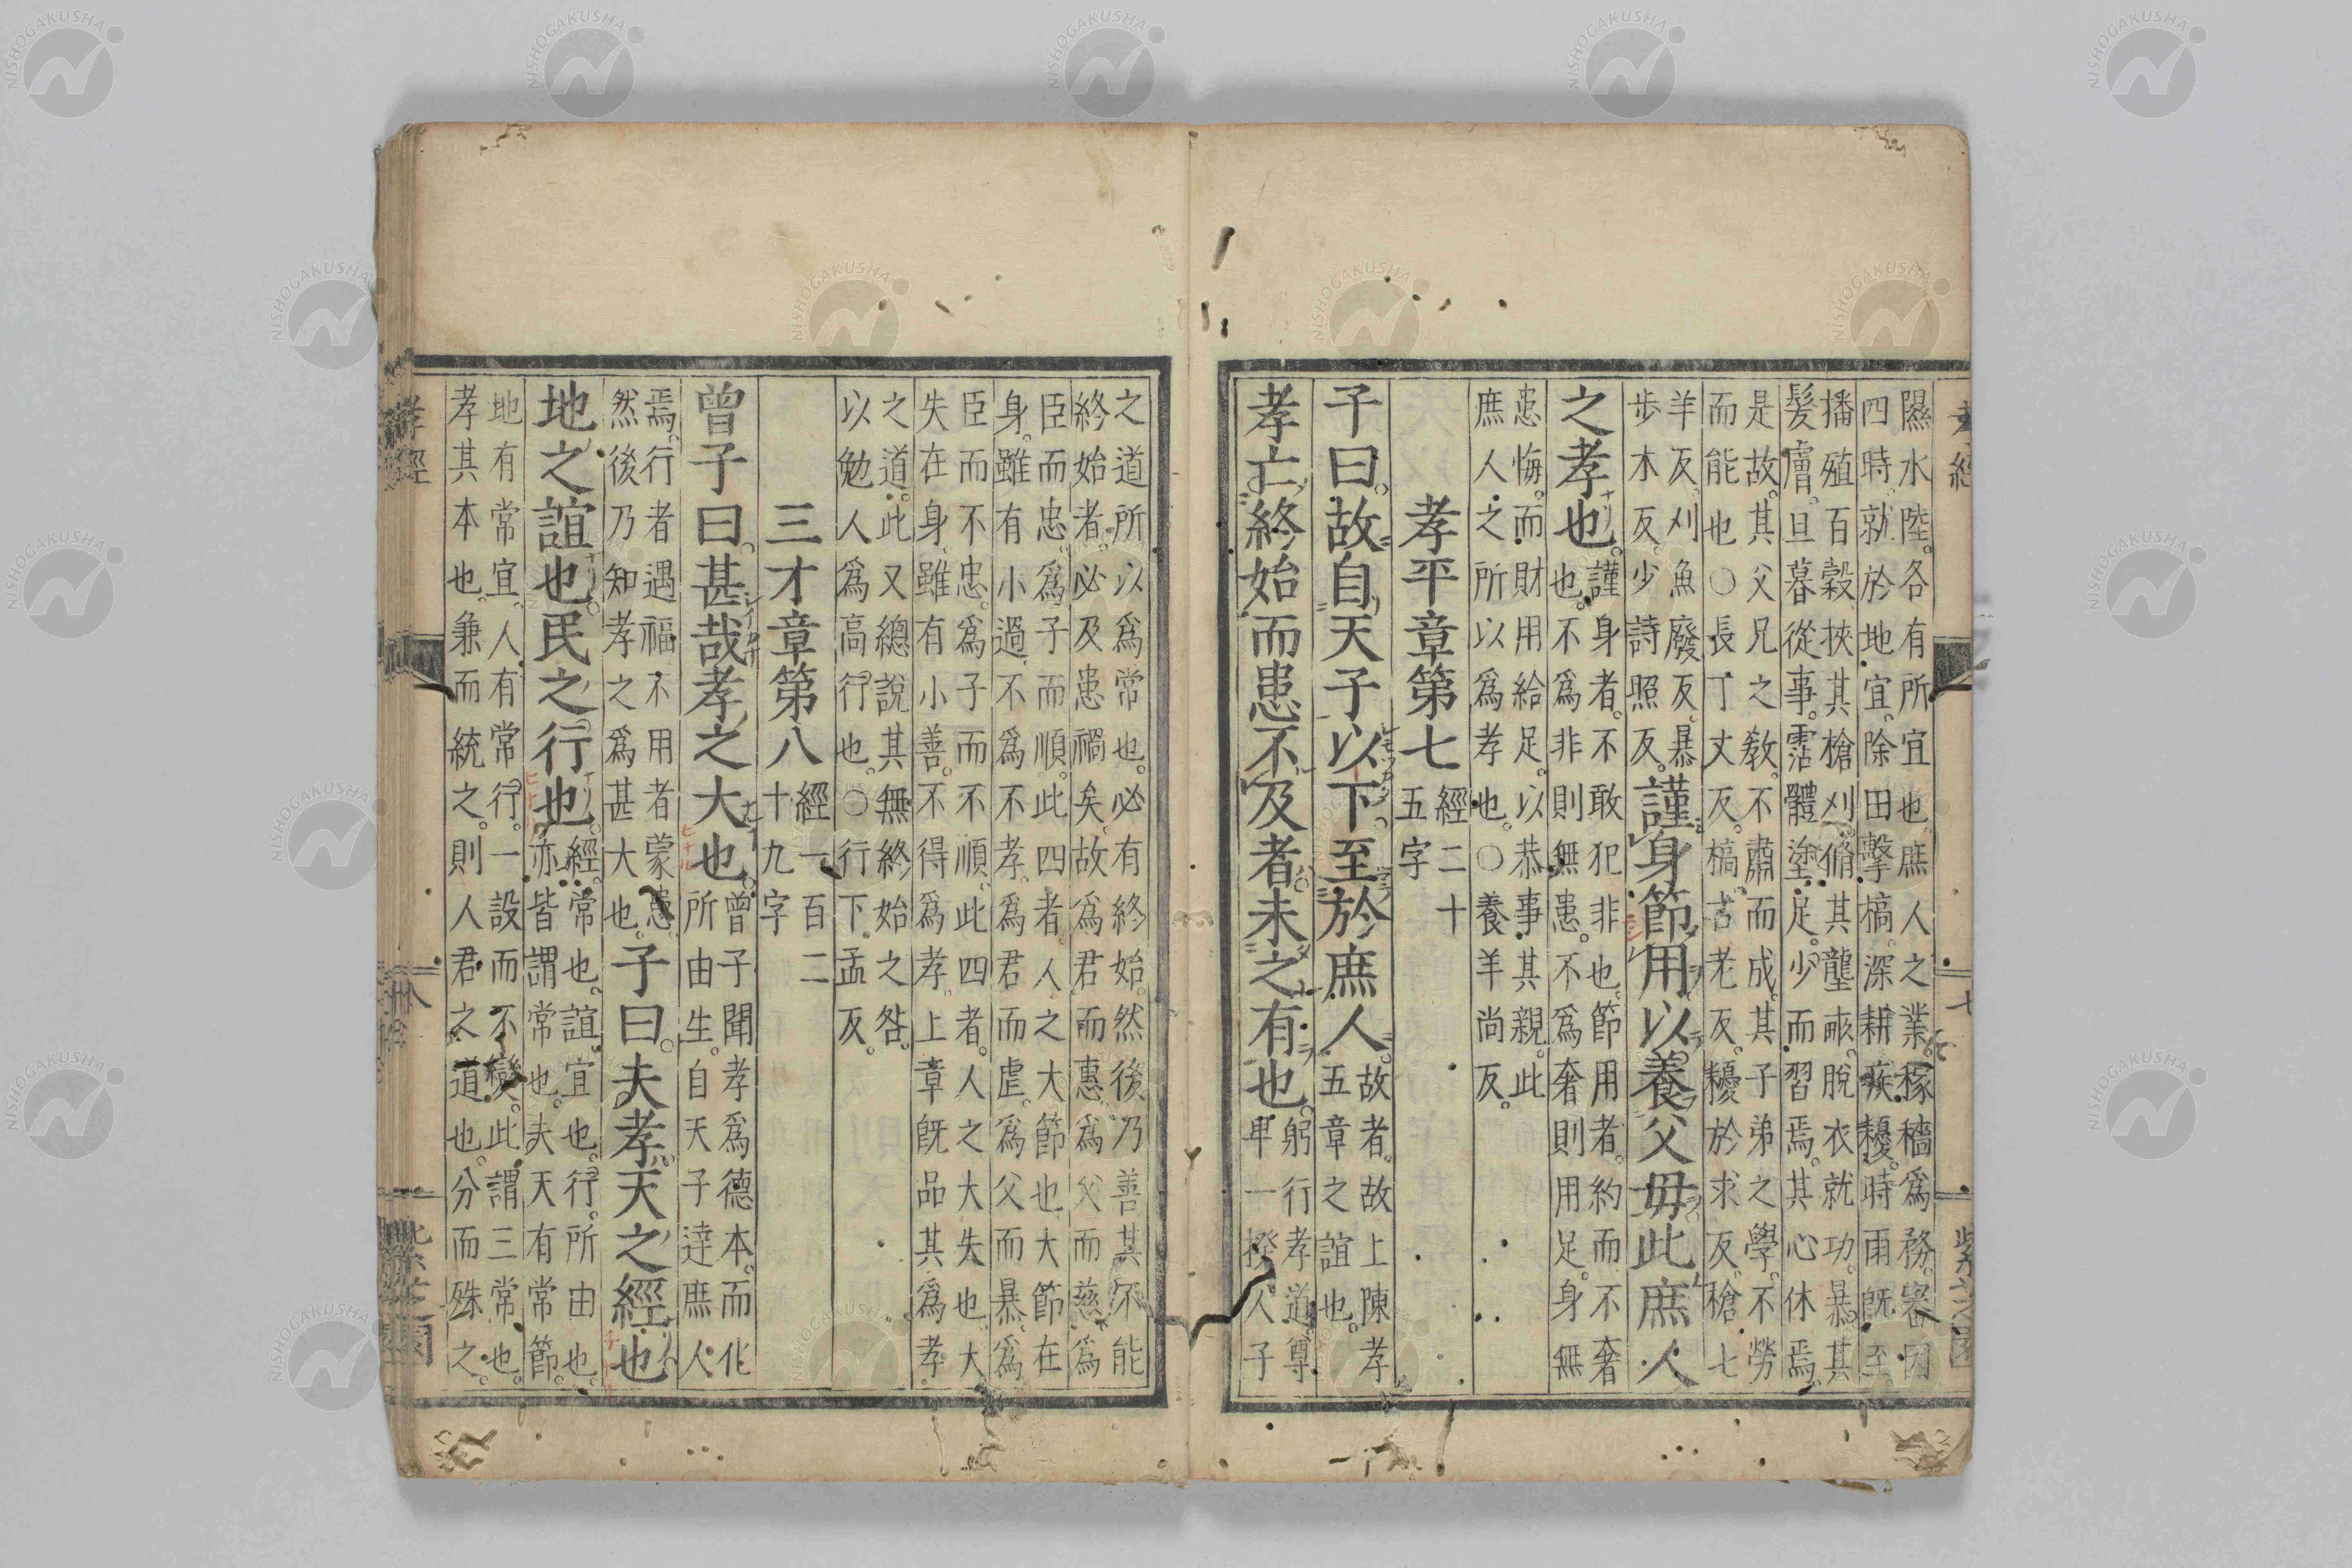 隰水陸。各有所宜也。庶人之業。稼穡爲務。審因
四時。就於地宜。除田擊槁。深耕疾耰。時雨既至
播殖百穀。挾其槍刈。脩其壟畞。脫衣就功。暴其
髪膚。旦暮從事。霑體塗足。少而習焉。其心休焉。
是故。其父兄之敎。不肅而成。其子弟之學。不勞
而能也○長丁丈反。槁苦老反。耰於求反。槍七
羊反。刈魚廢反。暴
步木反。少詩照反。
謹身節用以養父毋此庶人
之孝也。
謹身者。不敢犯非也。節用者。約而不奢
也。不爲非則無患。不爲奢則用足。身無
患悔。而財用給足。以恭事其親。此
庶人之所以爲孝也。○養羊尚反。
孝平章第七
經二十
五字
子曰。故自天子以下。至於庶人。
故者。故上陳孝
五章之誼也。
孝亡終始而患不及者。未之有也。
躬行孝道。尊
卑一揆。人子
之道所以爲常也。必有終始。然後乃善其不能
終始者。必及患禍矣。故爲君而惠。爲父而慈。爲
臣而忠。爲子而順。此四者。人之大節也。大節在
身。雖有小過。不爲不孝。爲君而虐。爲父而暴。爲
臣而不忠。爲子而不順。此四者。人之大失也。大
失在身。雖有小善。不得爲孝。上章旣品其爲孝
之道。此又總說其無終始之咎。
以勉人爲高行也。○行下孟反。
三才章第八
經一百二
十九字
曾子曰。甚哉孝之大也。
曾子聞孝爲德本。而化
所由生。自天子達庶人
焉。行者遇福。不用者蒙患
然後乃知孝之爲甚大也。
子曰。夫孝天之經也
地之誼也。民之行也
經。常也。誼。宜也。行。所由也。
亦皆謂常也。夫天有常節。
地有常宜。人有常行。一設而不變。此謂三常也。
孝其本也。兼而統之。則人君之道也。分而殊之。
孝經
七
紫芝園
孝經
八
紫芝園
NISHOGAKUSHA